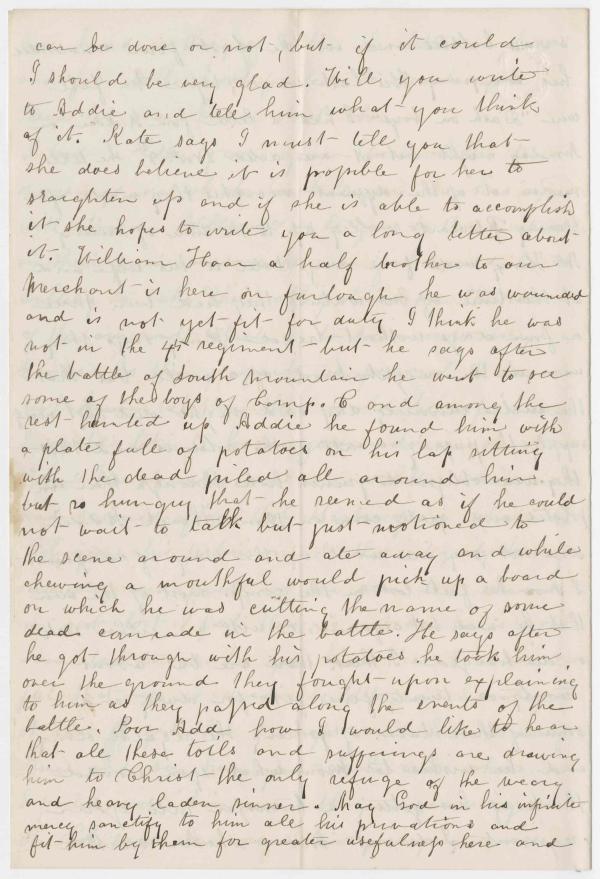 can be done or not, but if it could
I should be very glad. Will you write
to Addie and tell him what you think
of it. Kate says I must tell you that
she does believe it is possible for her to
straighten up and if she is able to accomplish
it she hopes to write you a long letter about
it. William Hoar a half brother to our
Merchant is here on furlough he was wounded
and is not yet fit for duty I think he was
not in the 45 regiment but he says after
the battle of South Mountain he went to see
some of the boys of Comp. C and among the
rest hunted up Addie he found him with
a plate full of potatoes on his lap sitting
with the dead piled all around him.
but so hungry that he seemed as if he could
not wait to talk but just motioned to
the scene around and ate away and while
chewing a mouthful would pick up a board
on which he was cutting the name of some
dead comrade in the battle. He says after
he got through with his potatoes he took him
over the ground they fought upon explaining
to him as they passed along the events of the
battle. Poor Add how I would like to hear
that all these toils and sufferings are drawing
him to Christ the only refuge of the weary
and heavy laden sinner. May God in his infinite
mercy sanctify to him all his privations and
fit him by them for greater usefulness here and